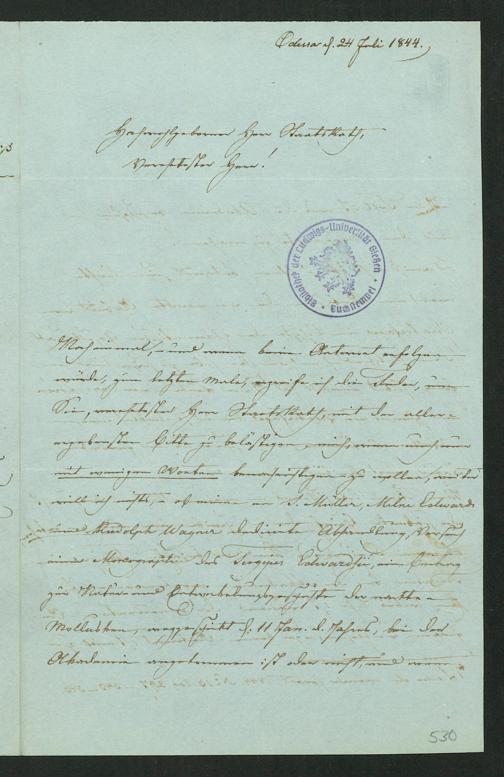 Odessa d. 24 Juli 1844.
Hochwohlgeborner Herr Staatsrath,
Verehrtester Herr!
Bibliothek der Ludwigs-Universität Gießen · Buchstempel ·
Noch einmal, und wenn keine Antwort erfolgen
würde, zum letzten Male, ergreife ich die Feder, um
Sie, verehrtester Herr Staatsrath, mit der aller-
ergebensten Bitte zu belästigen, mich wenn auch nur
mit wenigen Worten benachrichtigen zu wollen,
will ich nichts, ob meine an J. Müller, Milne Edwards
und Rudolph Wagner dedicirte Abhandlung, Versuch
einer Monographie des Sergipes Edwardsii, ein Beitrag
zur Natur- und Entwickelungsgeschichte der nackten
Mollusken, abgeschickt d. 11 Jan. d. Jahres, bei der
Akademie angekommen ist oder nicht, und wenn
530